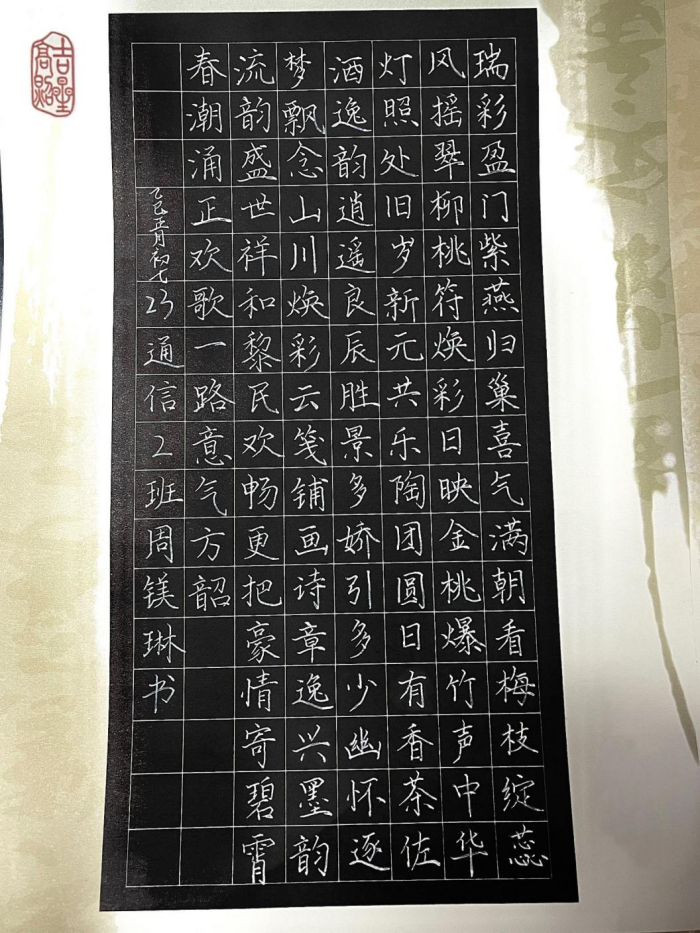 瑞彩盈门紫燕归巢喜气满朝看梅枝绽蕊
风摇翠柳桃符焕彩日映金桃爆竹声中华
灯照处旧岁新元共乐陶团圆日有香茶佐
酒逸韵逍遥良辰胜景多娇引多少幽怀逐
梦飘念山川焕彩云笺铺画诗章逸兴墨韵
流韵盛世祥和黎民欢畅更把豪情寄碧霄
春潮涌正欢歌一路意气方韶
乙巳正月初七23通信2班周镁琳书
吉星高照